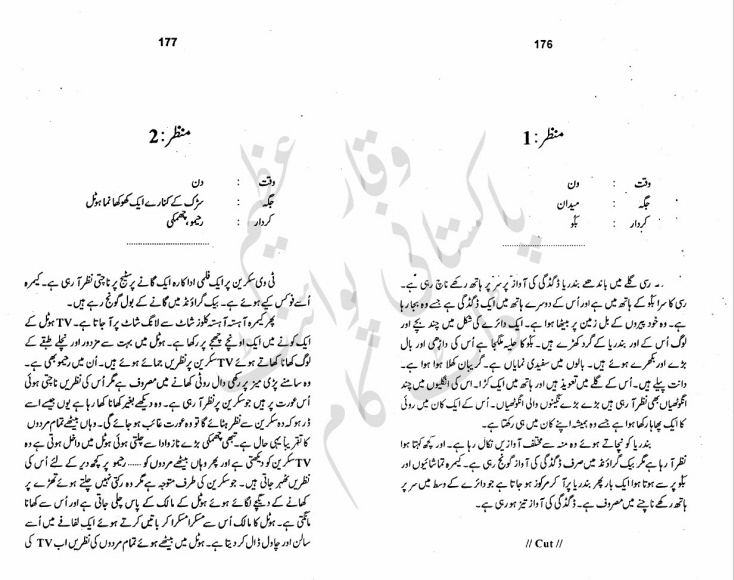 176
منظر:1
وقت : دن
جگہ : میدان
کردار : بلّو
رسی گلے میں باندھے بندریا ڈگڈگی کی آواز پر سر پر ہاتھ رکھے ناچ رہی ہے۔
رسی کا سرا بلّو کے ہاتھ میں ہے اور اُس کے دوسرے ہاتھ میں ایک ڈگڈگی ہے جسے وہ بجا رہا
ہے۔ وہ خود پیروں کے بل زمین پر بیٹھا ہوا ہے۔ ایک دائرے کی شکل میں چند بچے اور
لوگ اُس کے اور بندریا کے گرد کھڑے ہیں۔ بلّو کا حلیہ ملگجا ہے اُس کی داڑھی اور بال
بڑے اور بکھرے ہوئے ہیں۔ بالوں میں سفیدی نمایاں ہے۔ گریبان کھلا ہوا ہے۔
دانت پیلے ہیں۔ اُس کے گلے میں تعویذ ہیں اور ہاتھ میں ایک کڑا۔ اس کی انگلیوں میں چند
انگوٹھیاں بھی نظر آ رہی ہیں بڑے بڑے نگینوں والی انگوٹھیاں۔ اُس کے ایک کان میں روئی
کا ایک پھاہا رکھا ہوا ہے جسے وہ ہمیشہ اپنے کان میں ہی رکھتا ہے۔
بندریا کو نچاتے ہوئے وہ منہ سے مختلف آوازیں نکال رہا ہے۔ اور کچھ کہتا ہوا
نظر آ رہا ہے مگر بیک گراؤنڈ میں صرف ڈگڈگی کی آواز گونج رہی ہے۔ کیمرہ تماشائیوں اور
بلّو پر سے ہوتا ہوا ایک بار پھر بندریا پر آ کر مرکوز ہو جاتا ہے جو دائرے کے وسط میں سر پر
ہاتھ رکھے ناچنے میں مصروف ہے۔ ڈگڈگی کی آواز تیز ہو رہی ہے۔
// Cut //
177
منظر:2
وقت : دن
جگہ : سڑک کے کنارے ایک کھوکھا نما ہوٹل
کردار : رحیمو، چھمکی
ٹی وی سکرین پر ایک فلمی اداکارہ ایک گانے پر سٹیج پر ناچتی نظر آ رہی ہے۔ کیمرہ
اُسے فوکس کیے ہوئے ہے۔ بیک گراؤنڈ میں گانے کے بول گونج رہے ہیں۔
پھر کیمرہ آہستہ آہستہ کلوز شاٹ سے لانگ شاٹ پر آ جاتا ہے۔ TV ہوٹل کے
ایک کونے میں ایک اونچے چھجے پر رکھا ہے۔ ہوٹل میں بہت سے مزدور اور نچلے طبقے کے
لوگ کھانا کھاتے ہوئے TV سکرین پر نظریں جمائے ہوئے ہیں۔ اُن میں رحیمو بھی ہے۔
وہ سامنے پڑی میز پر رکھی دال روٹی کھانے میں مصروف ہے مگر اُس کی نظریں ناچتی ہوئی
اُس عورت پر ہیں جو سکرین پر نظر آ رہی ہے۔ وہ دیکھے بغیر کھانا کھا رہا ہے یوں جیسے اسے
ڈر ہو کہ وہ سکرین سے نظر ہٹائے گا تو وہ عورت غائب ہو جائے گی۔ وہاں بیٹھے تمام مردوں
کا تقریباً یہی حال ہے۔ تبھی چھمکی بڑے ناز و ادا سے چلتی ہوئی ہوٹل میں داخل ہوتی ہے وہ
TV سکرین کو دیکھتی ہے اور پھر وہاں بیٹھے مردوں کو...... رحیمو پر کچھ دیر کے لئے اُس کی
نظریں ٹھہر جاتی ہیں۔ جو سکرین کی طرف متوجہ ہے مگر وہ رکتی نہیں چلتے ہوئے تھڑے پر
کھانے کے دیگچے لگائے ہوئے ہوٹل کے مالک کے پاس چلی جاتی ہے اور اُس سے کھانا
مانگتی ہے۔ ہوٹل کا مالک اُس سے مسکرا مسکرا کر باتیں کرتے ہوئے ایک لفافے میں اُسے
سالن اور چاول ڈال کر دیتا ہے۔ ہوٹل میں بیٹھے ہوئے تمام مردوں کی نظریں اب TV کی
وقار عظیم
پاکستانی پوائنٹ
ڈاٹ کام